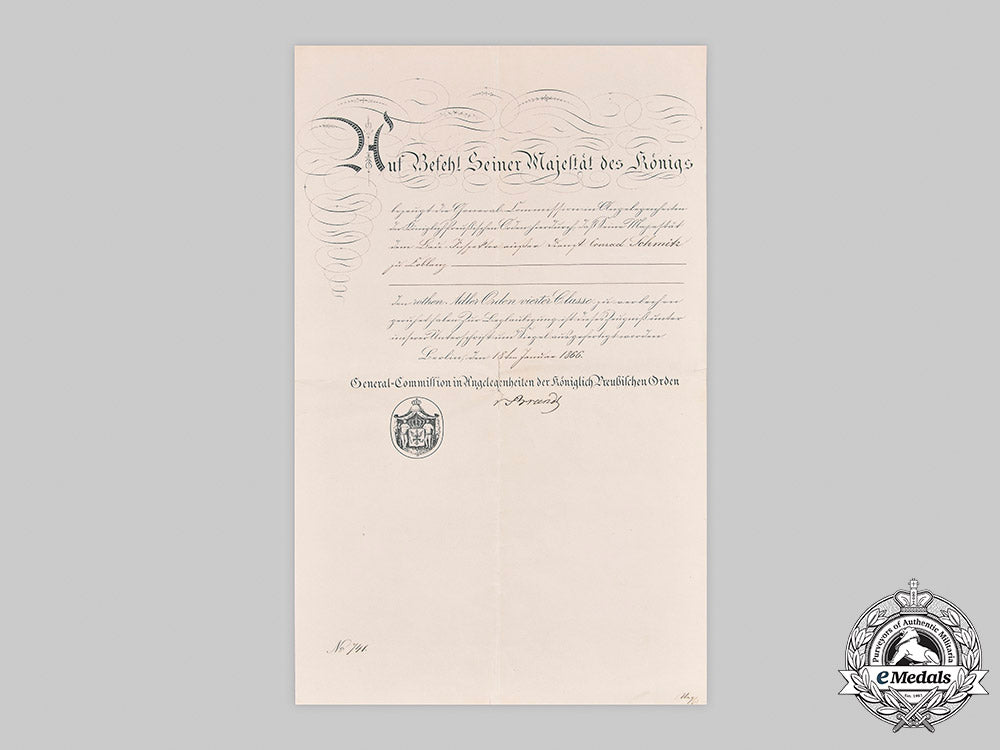 Auf Befehl Seiner Majestät des Königs
bezeugt die General-Commission in Angelegenheiten
der Königlich Preußischen Orden hierdurch, daß Seine Majestät
dem Bau Inspektor Conrad Schmitz
zu Coblenz
den rothen Adler Orden vierter Classe zu verleihen
geruhet haben. Zur Beglaubigung ist dieses Zeugniß unter
unserer Unterschrift und Siegel ausgefertigt worden
Berlin, den 18ten Januar 1866.
General-Commission in Angelegenheiten der Königlich Preußischen Orden
No 741
Purveyors of Authentic Militaria
eMedals